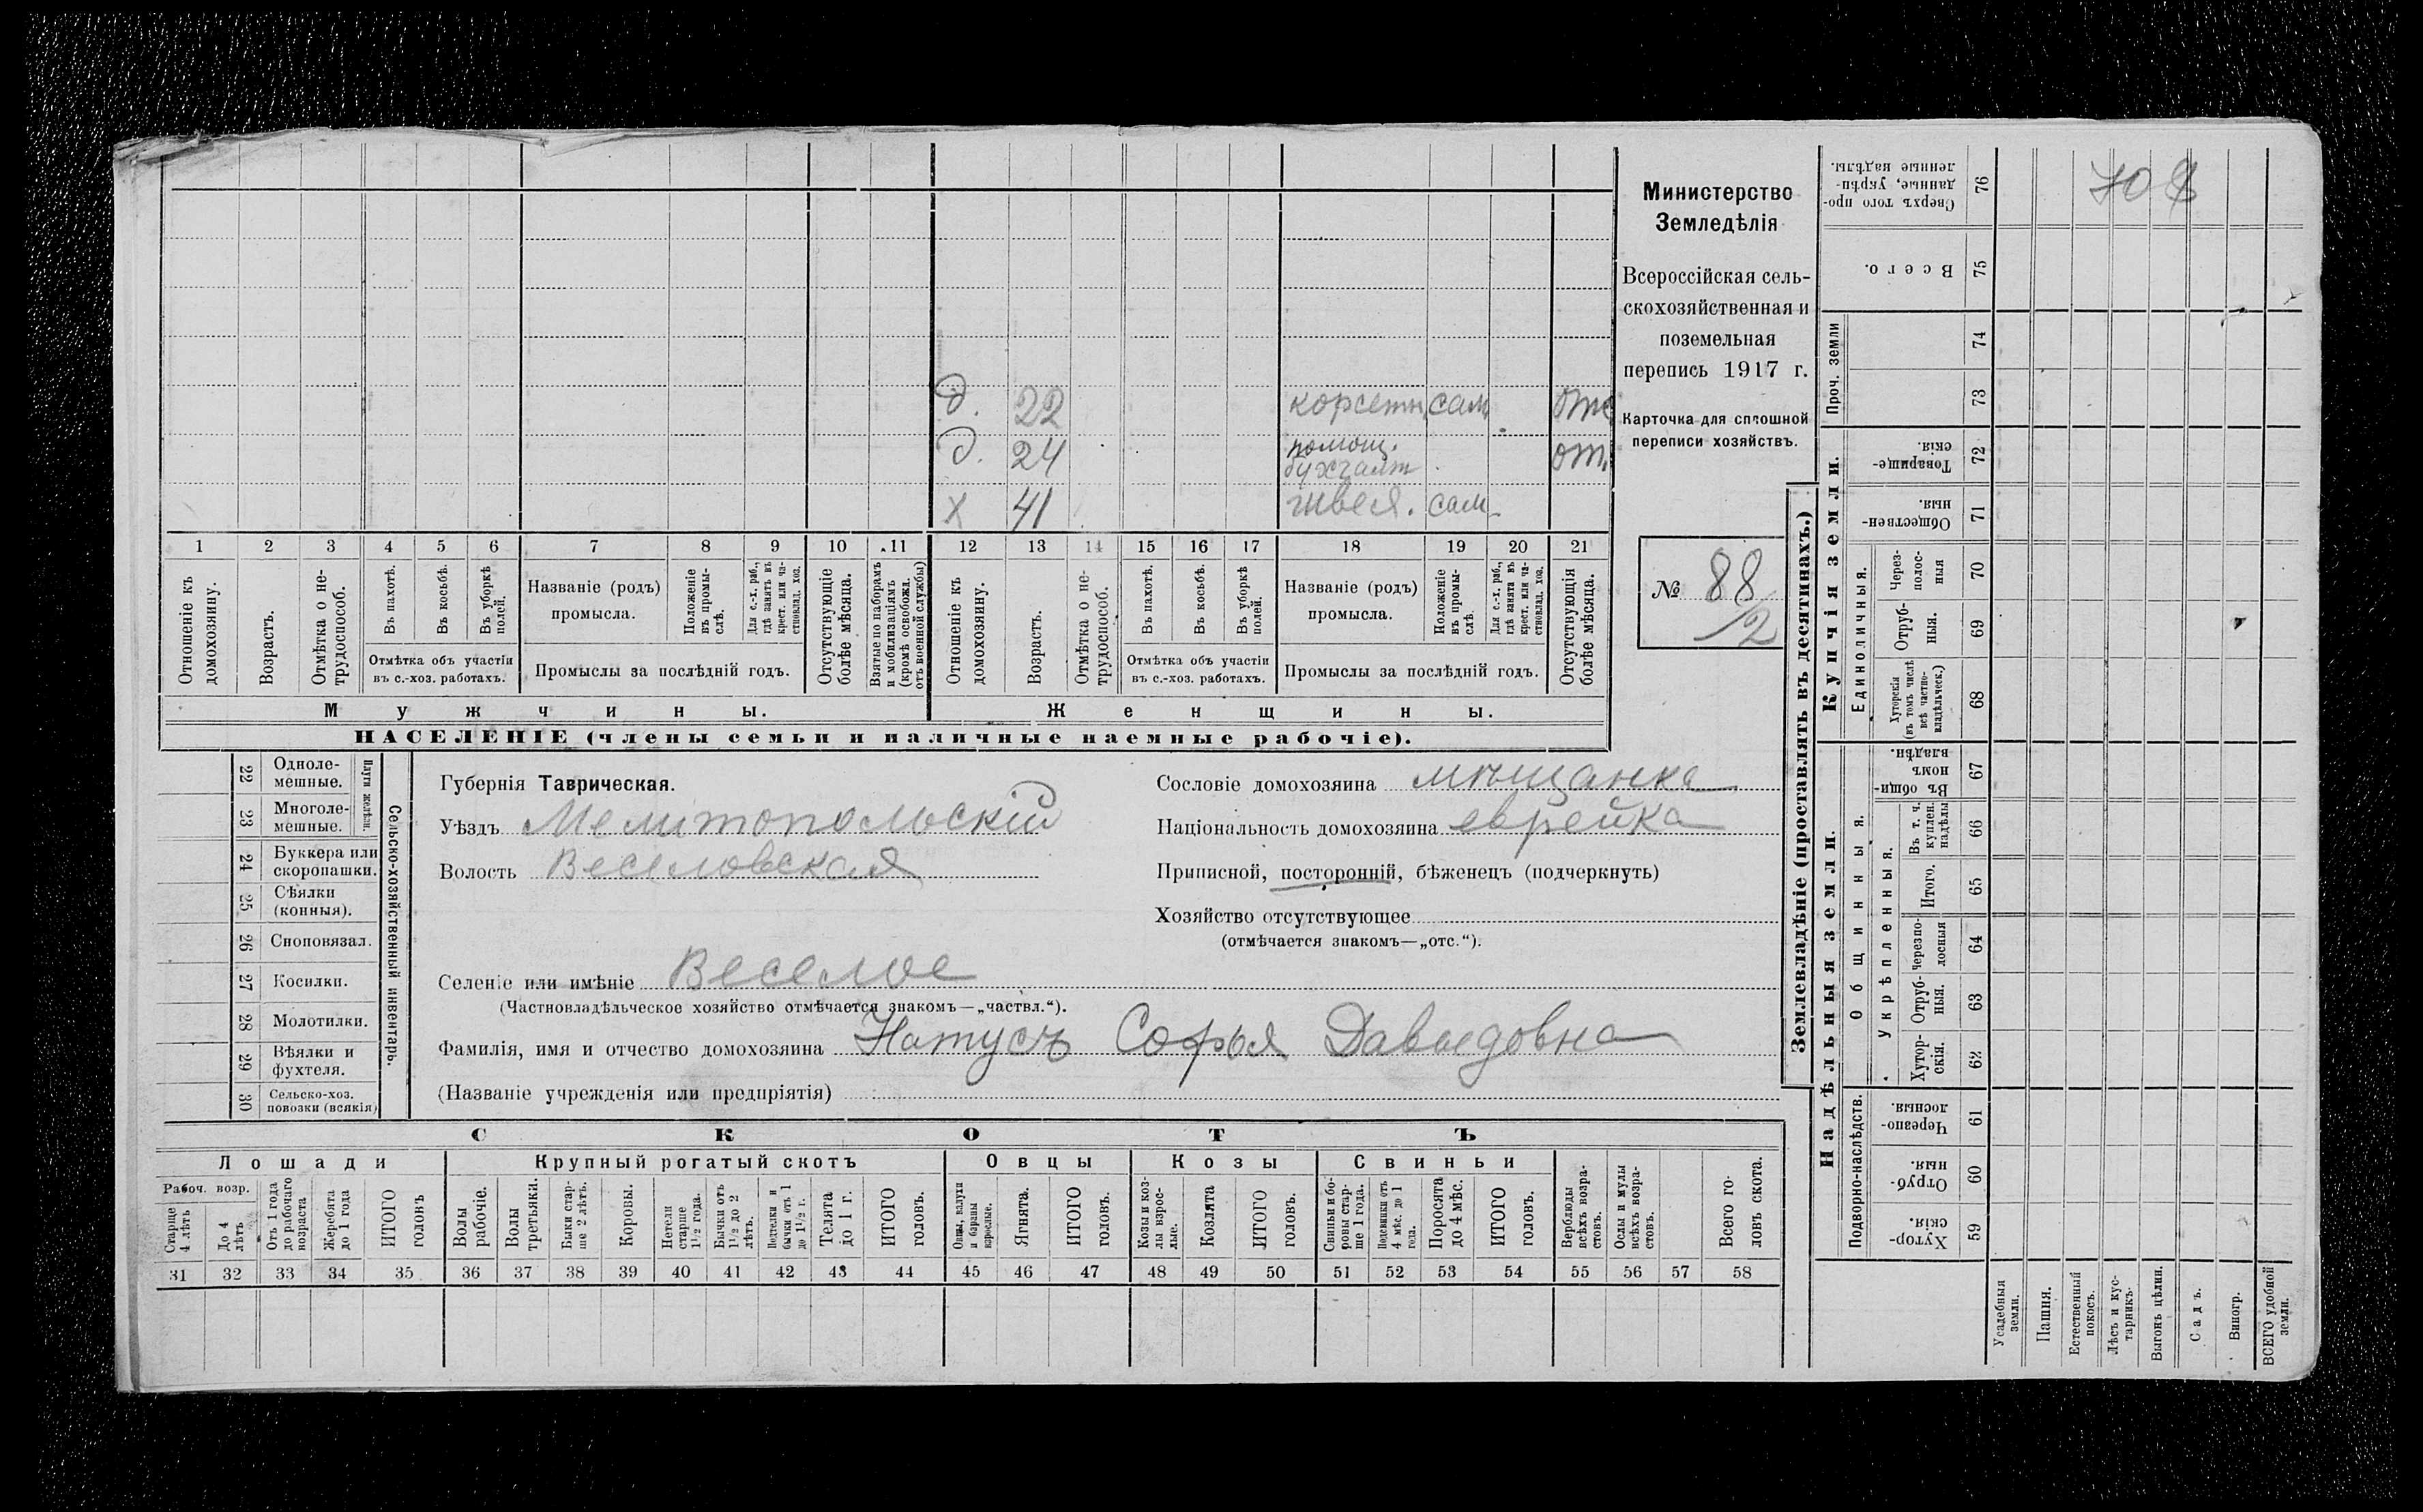 д. 22 корсетн. сам. отс
д. 24 помощ. бухгалт. от.
х 41 швея. сам.
1 2 3 4 5 6 7 8 9 10 11 12 13 14 15 16 17 18 19 20 21
Отношеніе къ домохозяину.
Возрастъ.
Отмѣтка о нетрудоспособ.
Въ пахотѣ.
Въ косьбѣ.
Въ уборкѣ полей.
Отмѣтка объ участіи
въ с.-хоз. работахъ.
Названіе (родъ)
промысла.
Положеніе въ промыслѣ.
Для с.-х. раб., гдѣ занятъ въ крест. или частновлад. хоз.
Промыслы за послѣдній годъ.
Отсутствующіе болѣе мѣсяца.
Взятые по наборамъ и мобилизаціямъ (кромѣ освобожд. отъ военной службы)
Отношеніе къ домохозяину.
Возрастъ.
Отмѣтка о нетрудоспособ.
Въ пахотѣ.
Въ косьбѣ.
Въ уборкѣ полей.
Отмѣтка объ участіи
въ с.-хоз. работахъ.
Названіе (родъ)
промысла.
Положеніе въ промыслѣ.
Для с.-х. раб., гдѣ занята въ крест. или частновлад. хоз.
Промыслы за послѣдній годъ.
Отсутствующія болѣе мѣсяца.
Мужчины.
Женщины.
НАСЕЛЕНІЕ (члены семьи и наличные наемные рабочіе).
Министерство
Земледѣлія
Всероссійская сель-
скохозяйственная и
поземельная
перепись 1917 г.
Карточка для сплошной
переписи хозяйствъ.
№ 88
2
22 Одноле-
мешные.
23 Многоле-
мешные.
Плуги желѣзн.
24 Буккера или
скоропашки.
25 Сѣялки
(конныя).
26 Сноповязал.
27 Косилки.
28 Молотилки.
29 Вѣялки и
фухтеля.
30 Сельско-хоз.
повозки (всякія)
Сельско-хозяйственный инвентарь.
Губернія Таврическая.
Уѣздъ Мелитопольскій
Волость Веселовская
Сословіе домохозяина мѣщанка
Національность домохозяина еврейка
Приписной, посторонній, бѣженецъ (подчеркнуть)
Хозяйство отсутствующее
(отмѣчается знакомъ—„отс.“).
Селеніе или имѣніе Веселое
(Частновладѣльческое хозяйство отмѣчается знакомъ—„частвл.“).
Фамилія, имя и отчество домохозяина Натусъ Софья Давыдовна
(Названіе учрежденія или предпріятія)
СКОТЪ
Лошади
Крупный рогатый скотъ
Овцы
Козы
Свиньи
Рабоч. возр.
Старше 4 лѣтъ
До 4 лѣтъ
Отъ 1 года до рабочаго возраста
Жеребята до 1 года
ИТОГО головъ
Волы рабочіе.
Волы третьяки.
Быки старше 2 лѣтъ.
Коровы.
Нетели старше 1½ года.
Бычки отъ 1½ до 2 лѣтъ.
Нетелки и бычки отъ 1 до 1½ г.
Телята до 1 г.
ИТОГО головъ.
Овцы, валухи и бараны взрослые.
Ягнята.
ИТОГО головъ.
Козы и козлы взрослые.
Козлята
ИТОГО головъ.
Свиньи и боровы старше 1 года.
Подсвинки отъ 4 мѣс. до 1 года.
Поросята до 4 мѣс.
ИТОГО головъ.
Верблюды всѣхъ возрастовъ.
Ослы и мулы всѣхъ возрастовъ.
Всего головъ скота.
31 32 33 34 35 36 37 38 39 40 41 42 43 44 45 46 47 48 49 50 51 52 53 54 55 56 57 58
Землевладѣніе (проставлять въ десятинахъ.)
Надѣльныя земли.
Купчія земли.
Проч. земли
Подворно-наслѣдств.
Общинныя.
Укрѣпленныя.
Единоличныя.
Хуторскія. 59
Отрубныя. 60
Черезполосныя. 61
Хуторскія. 62
Отрубныя. 63
Черезполосныя 64
Итого. 65
Въ т. ч. куплен. надѣлы 66
Въ общинномъ владѣн. 67
Хуторскія (въ томъ числѣ всѣ частновладѣльческ.) 68
Отрубныя. 69
Черезполосныя 70
Общественныя. 71
Товарищескія. 72
73
74
Всего. 75
Сверхъ того проданные, укрѣпленные надѣлы. 76
Усадебныя земли.
Пашня.
Естественный покосъ.
Лѣсъ и кустарникъ.
Выгонъ цѣлин.
Садъ.
Виногр.
ВСЕГО удобной земли.